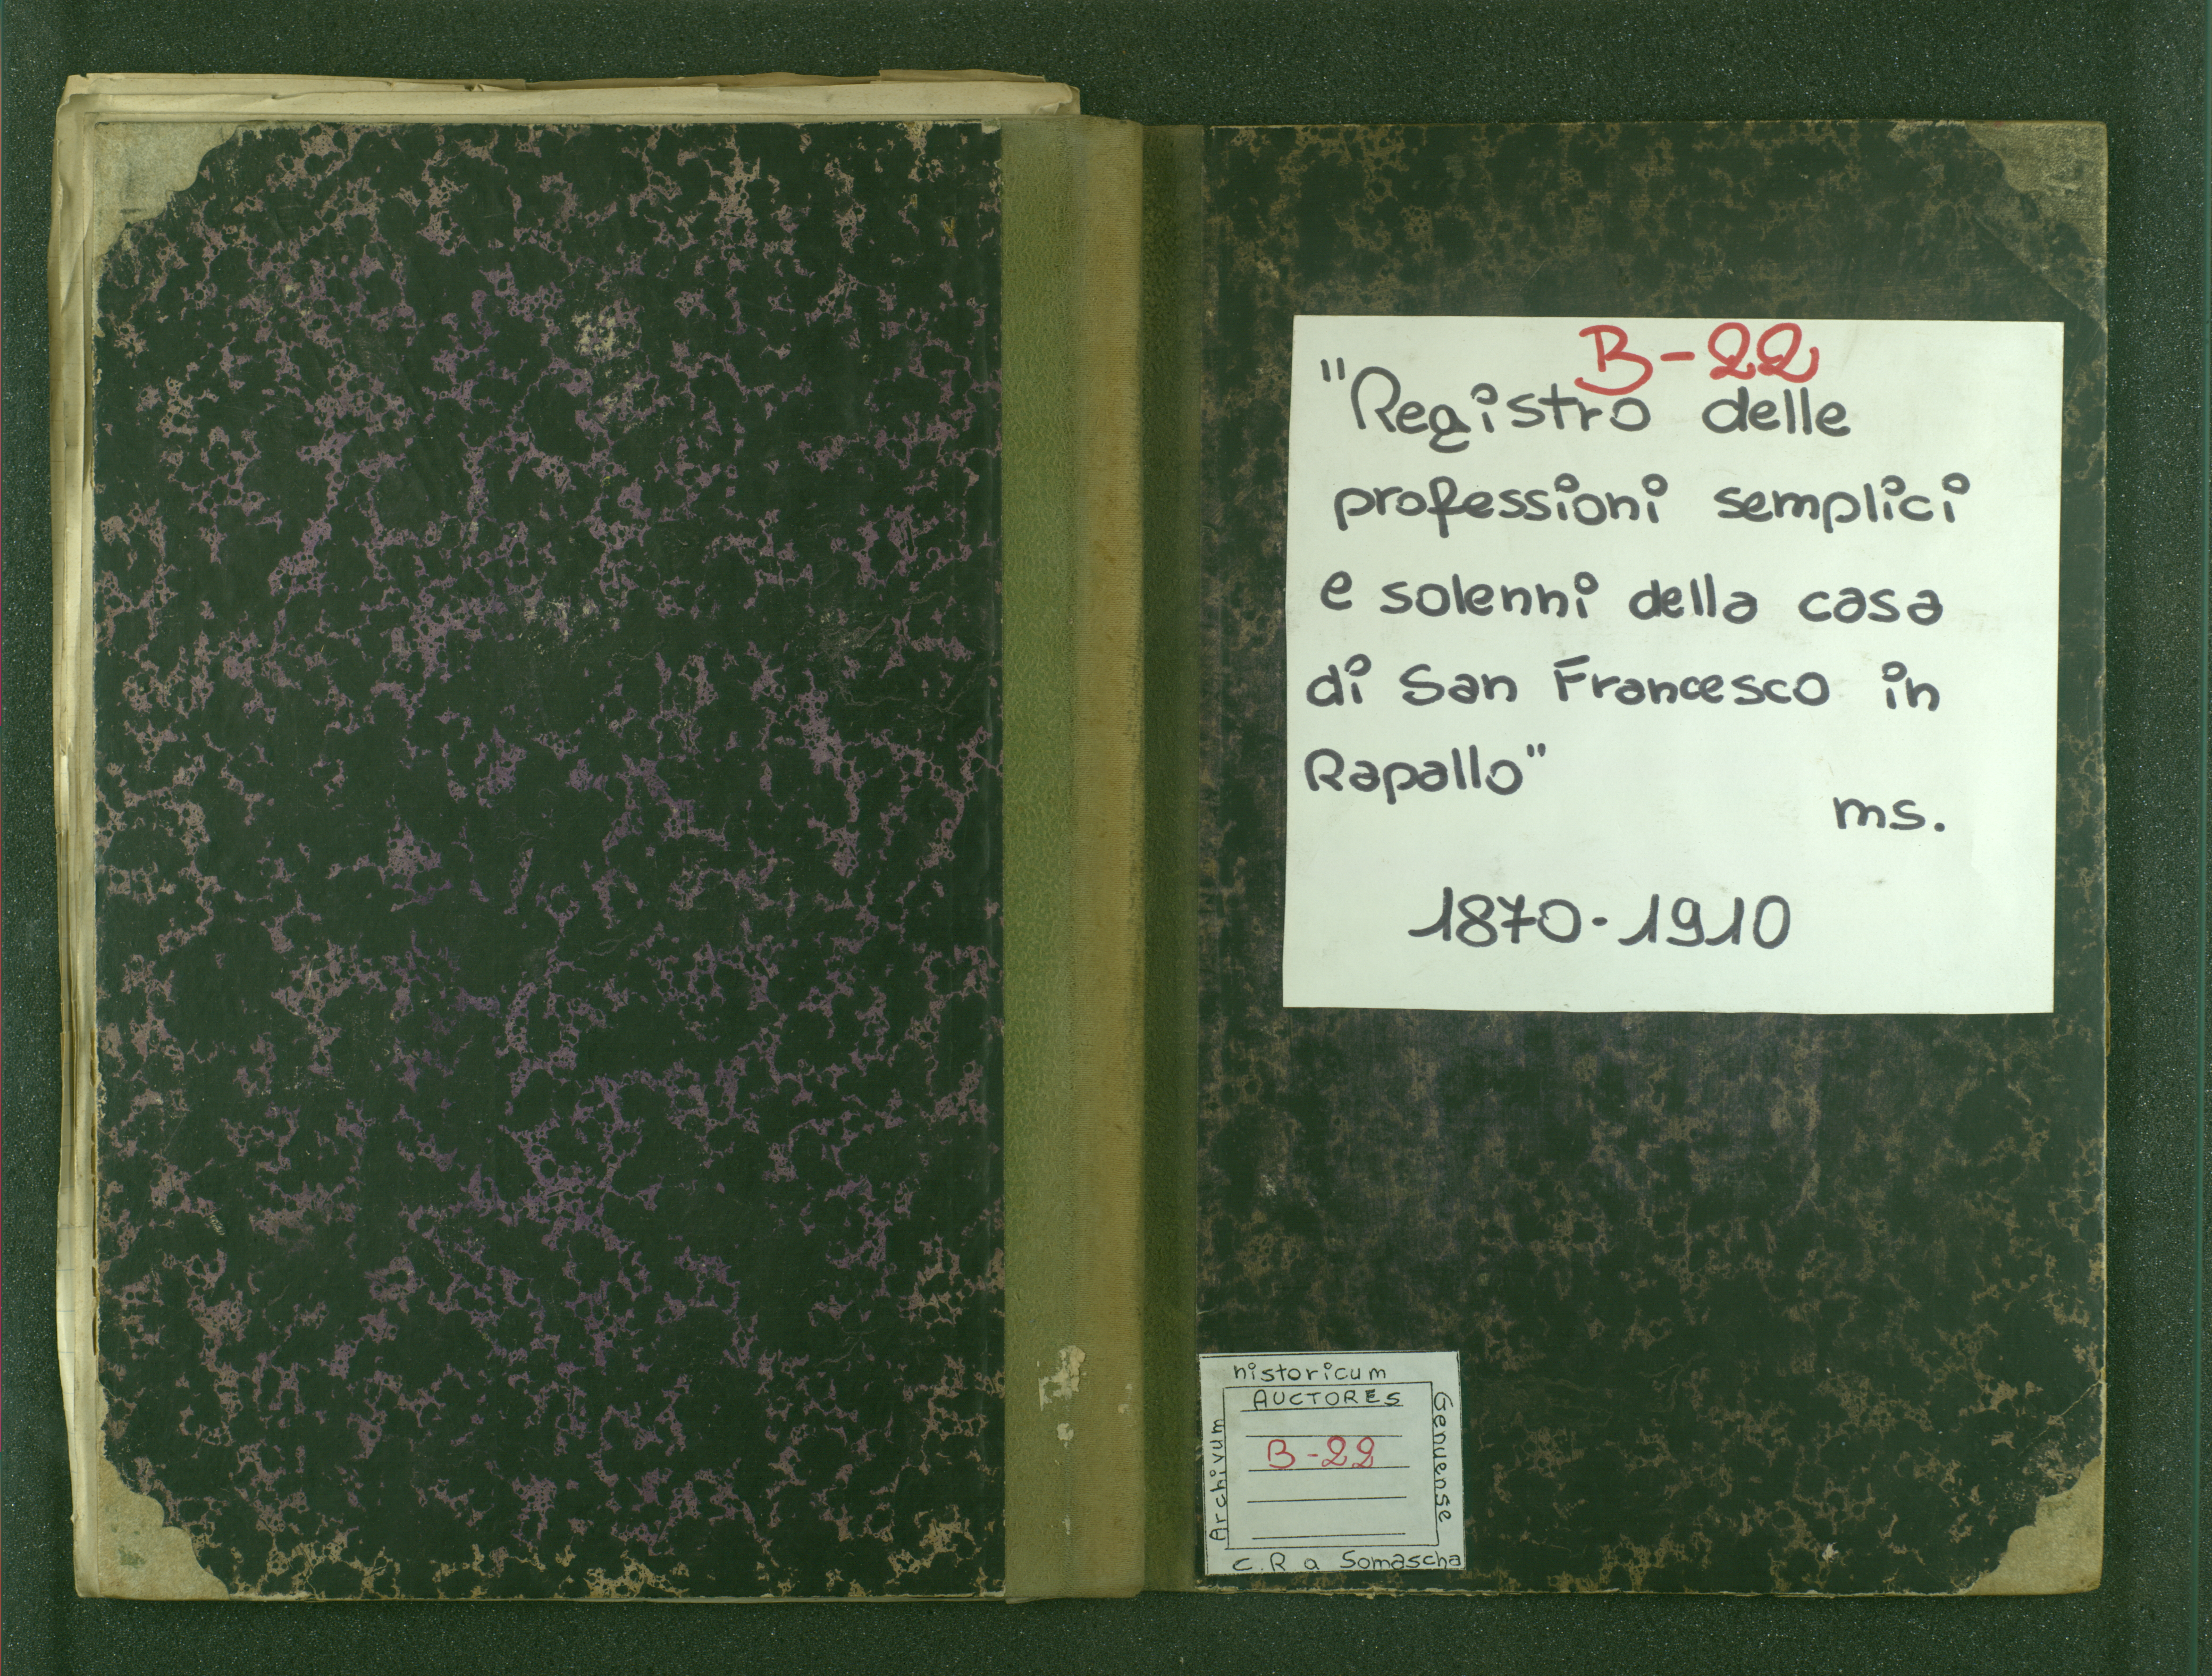 B-22
"Registro delle
professioni semplici
e solenni della casa
di San Francesco in
Rapallo"
ms.
1870-1910
historicum
AUCTORES
B-22
Archivum
Genuense
C.R a Somascha